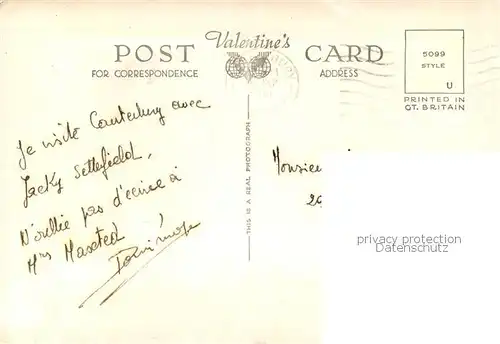 Valentine's
POST CARD
FOR CORRESPONDENCE
ADDRESS
5099
STYLE
U
PRINTED IN
GT. BRITAIN
THIS IS A REAL PHOTOGRAPH
Je visite Canterbury avec
Jacky Settefield,
N'oublie pas d'écrire à
Mrs Maxted !
Dominique
Monsieu
privacy protection
Datenschutz